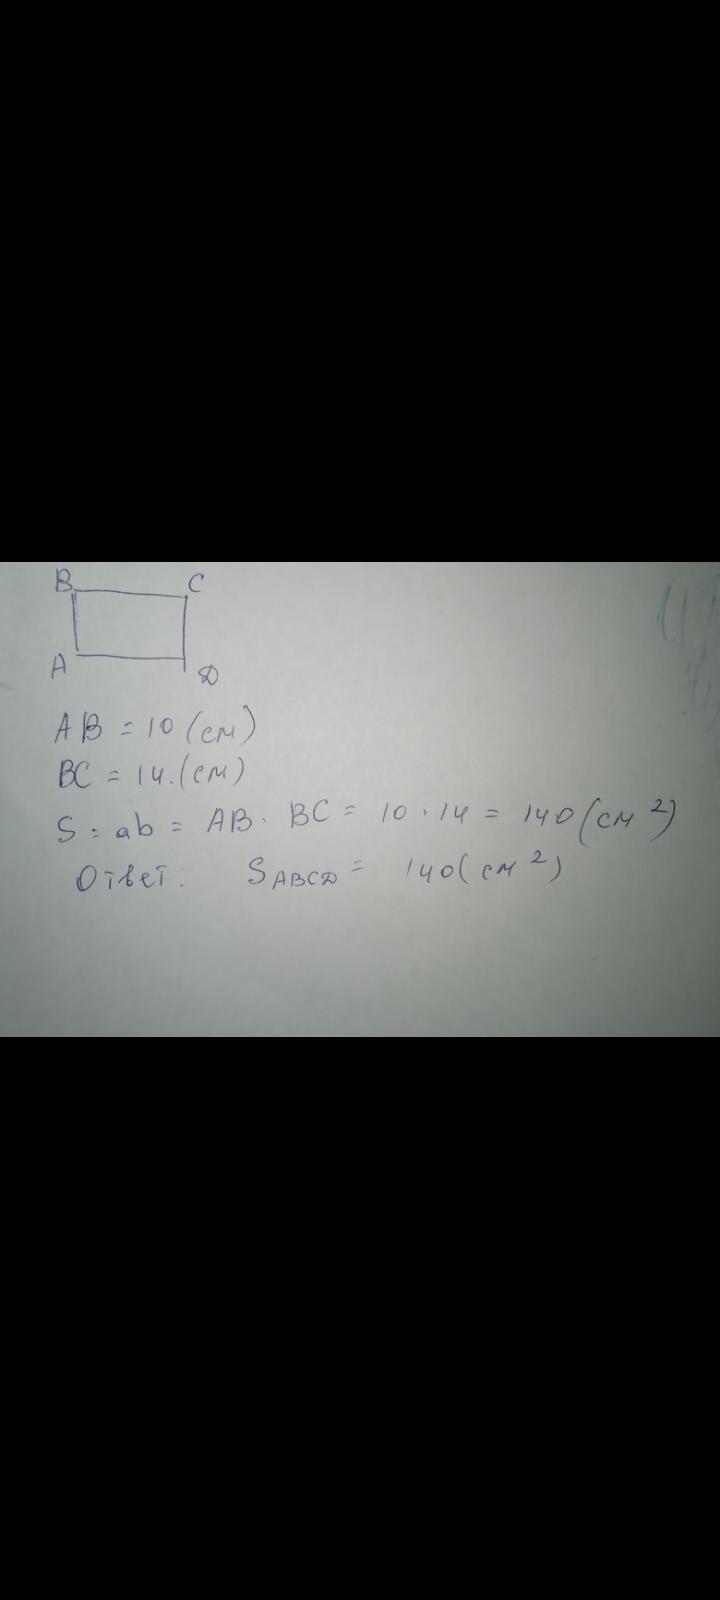 B C
A D
AB = 10 (см)
BC = 14. (см)
S = ab = AB · BC = 10 · 14 = 140 (см²)
Ответ. S ABCD = 140 (см²)